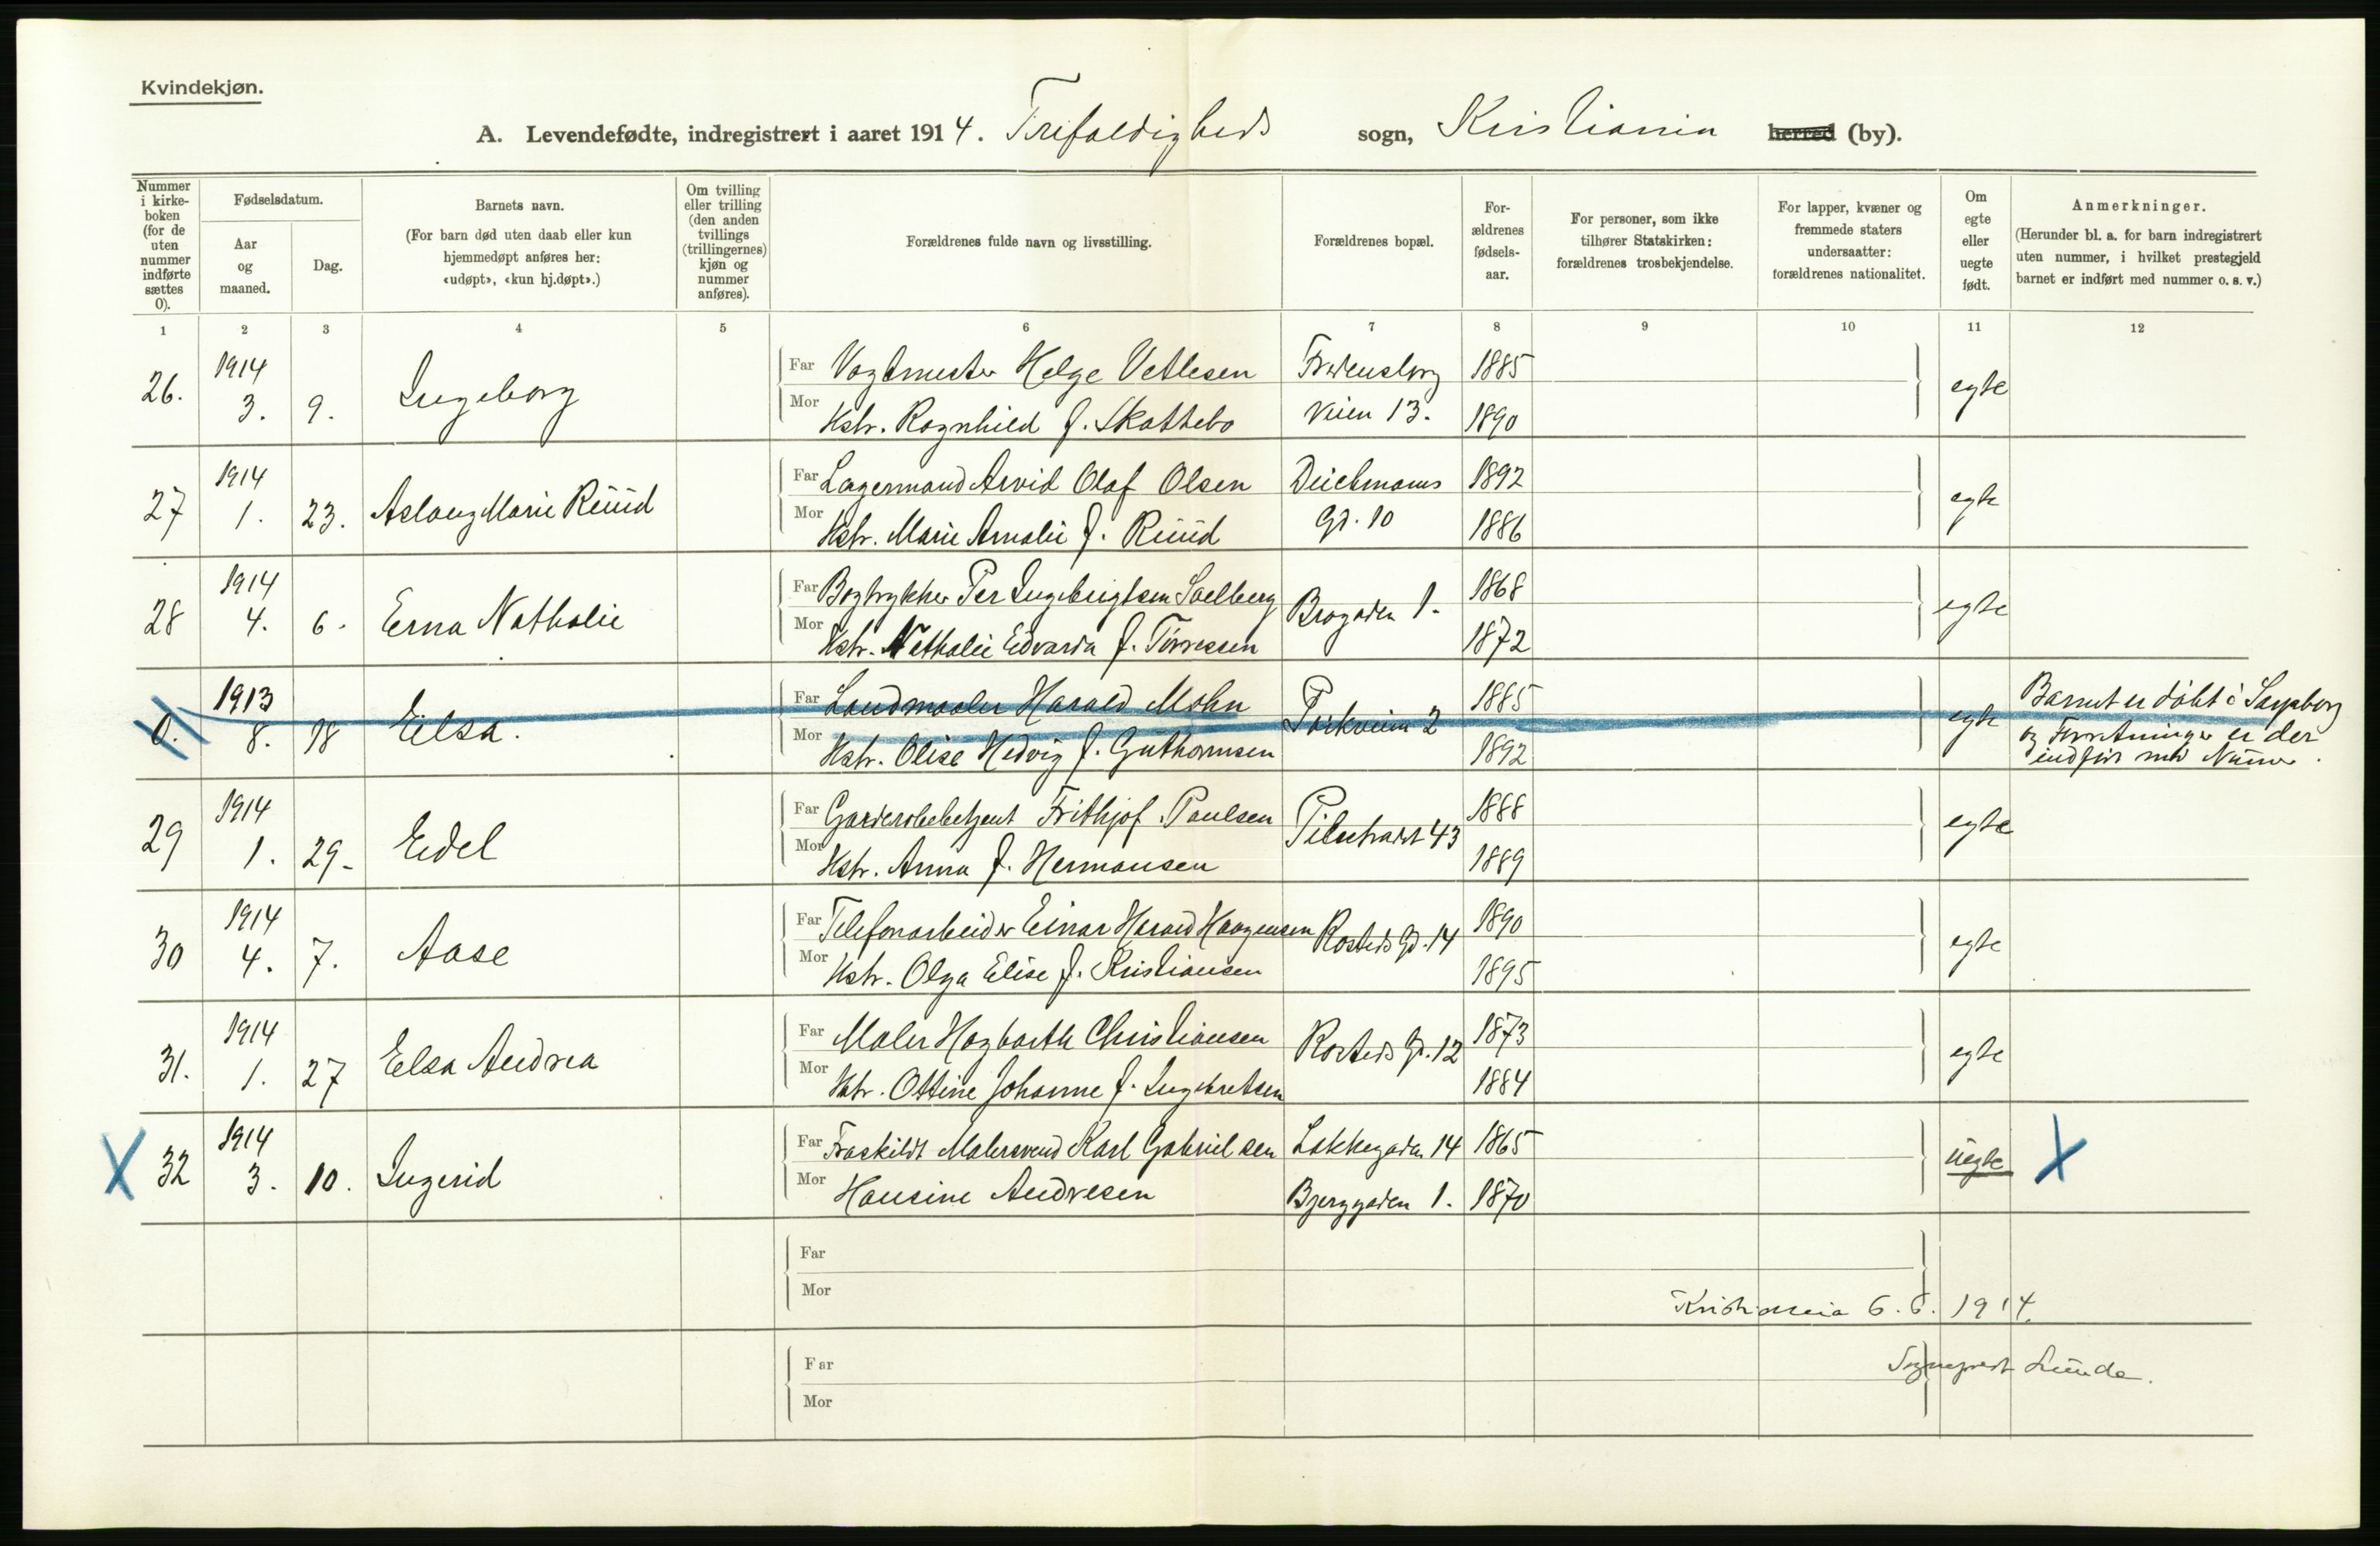 Kvindekjøn.
A. Levendefødte, indregistrert i aaret 1914. Trefoldigheds sogn, Kristiania herred (by).
Nummer i kirkeboken (for de uten nummer indførte sættes 0).
Fødselsdatum.
Aar og maaned.
Dag.
Barnets navn.
(For barn død uten daab eller kun hjemmedøpt anføres her: «udøpt», «kun hj.døpt».)
Om tvilling eller trilling (den anden tvillings (trillingernes) kjøn og nummer anføres).
Forældrenes fulde navn og livsstilling.
Forældrenes bopæl.
Forældrenes fødselsaar.
For personer, som ikke tilhører Statskirken: forældrenes trosbekjendelse.
For lapper, kvæner og fremmede staters undersaatter: forældrenes nationalitet.
Om egte eller uegte født.
Anmerkninger.
(Herunder bl. a. for barn indregistrert uten nummer, i hvilket prestegjeld barnet er indført med nummer o. s. v.)
1 2 3 4 5 6 7 8 9 10 11 12
26. 1914 3. 9. Ingeborg
Far Vogtmester Helge Vetlesen Fredensborg 1885
Mor Hstr. Ragnhild f. Skattebo veien 13. 1890 egte
27 1914 1. 23. Aslaug Marie Ruud
Far Lagermand Arvid Olaf Olsen Deichmans 1892
Mor Hstr. Marie Amalie f. Ruud Gd. 10 1886 egte
28 1914 4. 6. Erna Nathalie
Far Bogtrykker Per Ingebrigtsen Solberg Brogaden 1. 1868
Mor Hstr. Nathalie Edvarda f. Tørresen 1872 egte
0. 1913 8. 18 Elsa.
Far Landmaaler Harald Mohn Parkveien 2 1885
Mor Hstr. Olise Hedvig f. Guthormsen 1892 egte
Barnet er døbt i Sarpsborg
og Forretningen er der
indført med Numer.
29 1914 1. 29. Edel
Far Garderobebetjent Frithjof Paulsen Pilestrædet 43 1888
Mor Hstr. Anna f. Hermansen 1889 egte
30 1914 4. 7. Aase
Far Telefonarbeider Einar Harald Haagensen Rosteds Gd. 14 1890
Mor Hstr. Olga Elise f. Kristiansen 1895 egte
31. 1914 1. 27 Elsa Andrea
Far Maler Hagbarth Christiansen Rosteds Gd. 12 1873
Mor Hstr. Ottine Johanne f. Ingebretsen 1884 egte
X 32 1914 3. 10. Ingerid
Far Fraskildt Malersvend Karl Gabrielsen Løkkegaden 14 1865
Mor Hansine Andresen Bjerggaden 1. 1870 uegte X
Far
Mor
Kristiania 6. 6. 1914.
Far
Sogneprest Lunde.
Mor